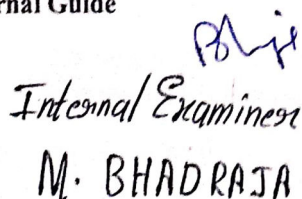 rnal Guide
Internal Examiner
M. BHADRAJA